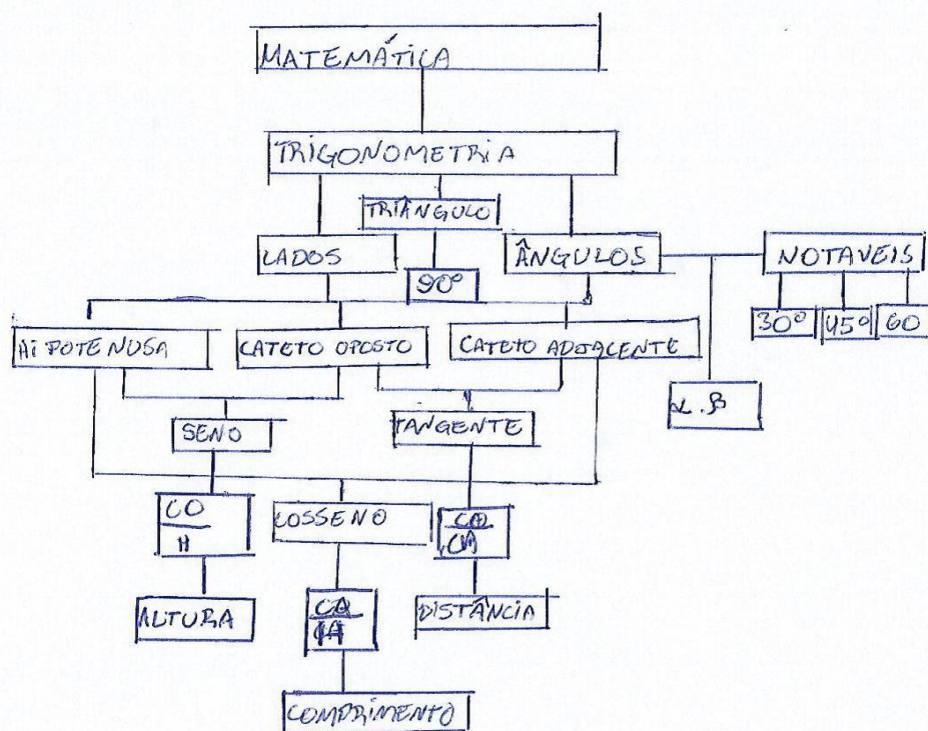 MATEMÁTICA
TRIGONOMETRIA
TRIÂNGULO
LADOS
ÂNGULOS
NOTAVEIS
90º
30º
45º
60
HIPOTENUSA
CATETO OPOSTO
CATETO ADJACENTE
α.β
SENO
TANGENTE
CO
H
COSSENO
CO
CA
ALTURA
CA
H
DISTÂNCIA
COMPRIMENTO